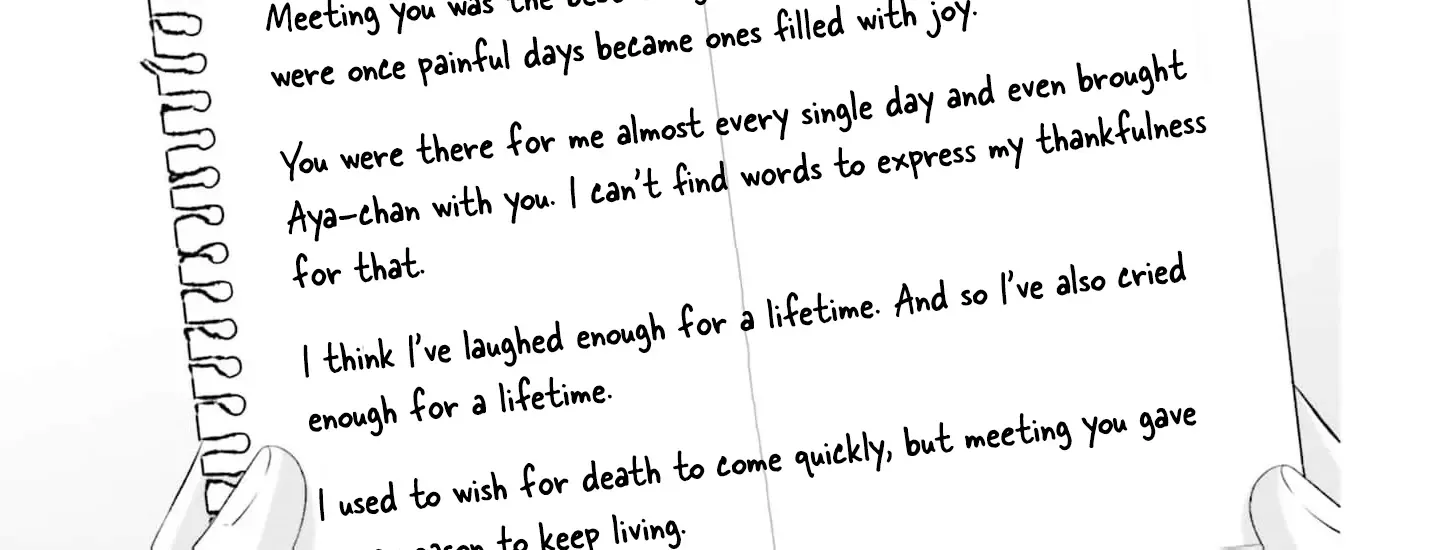 Meeting you was the best
were once painful days became ones filled with joy.
You were there for me almost every single day and even brought
Aya-chan with you. I can't find words to express my thankfulness
for that.
I think I've laughed enough for a lifetime. And so I've also cried
enough for a lifetime.
I used to wish for death to come quickly, but meeting you gave
reason to keep living.